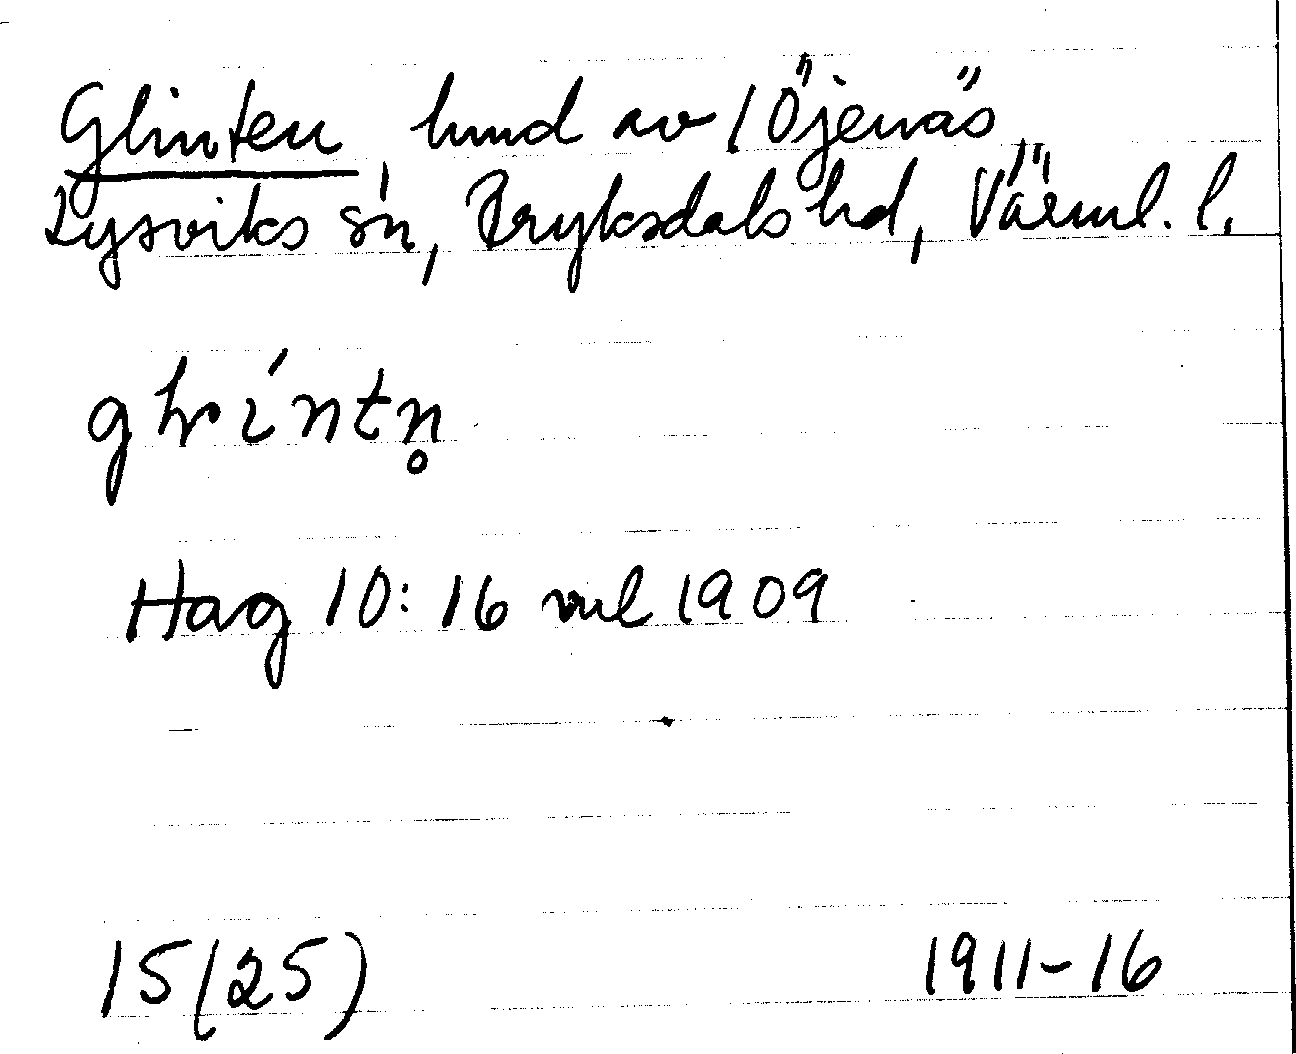 Glinten, hmd av 1 Öjenäs,
Lysviks sn, Fryksdals hd, Värml. l.
Hag 10:16 vml 1909
15(25) 1911-16